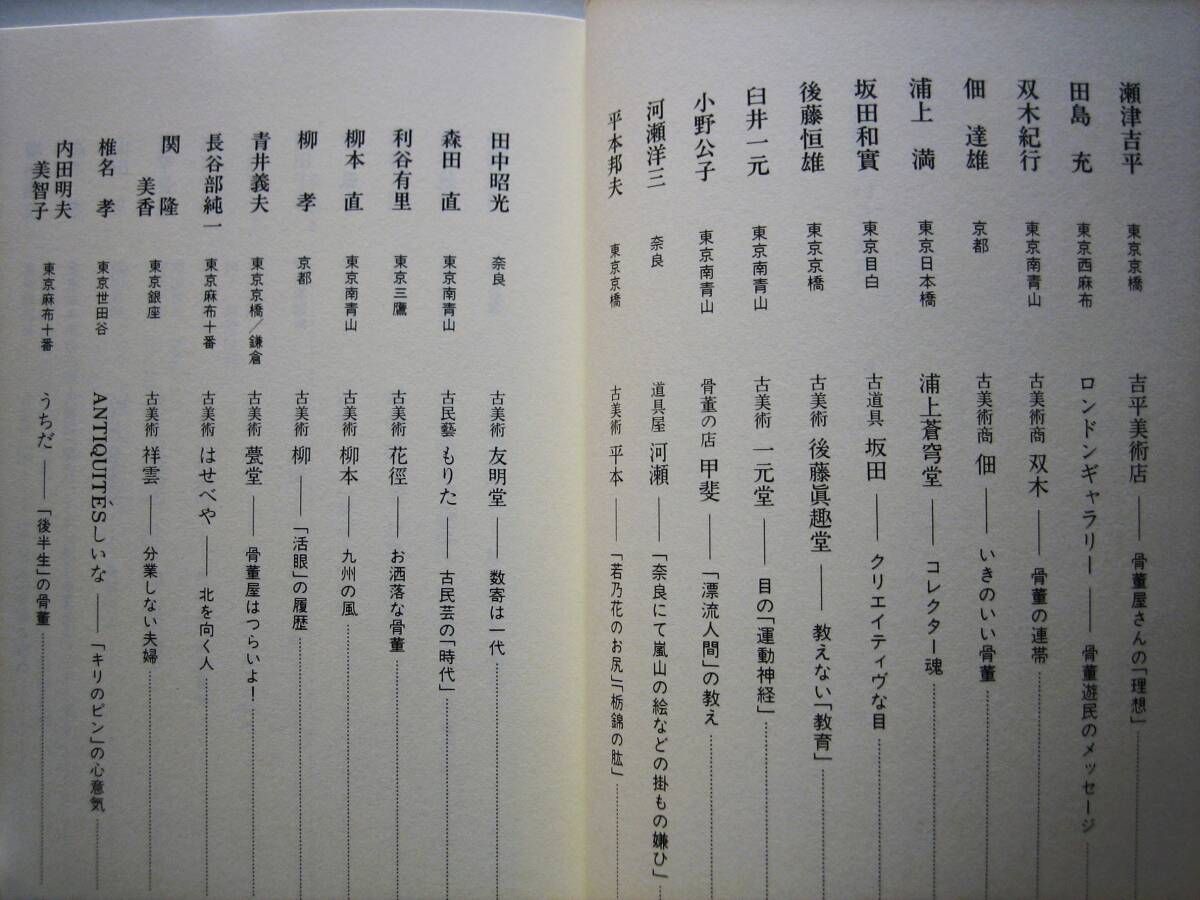 瀬津吉平 東京京橋 吉平美術店――骨董屋さんの「理想」
田島 充 東京西麻布 ロンドンギャラリー――骨董遊民のメッセージ
双木紀行 東京南青山 古美術商 双木――骨董の連帯
佃 達雄 京都 古美術商 佃――いきのいい骨董
浦上 満 東京日本橋 浦上蒼穹堂――コレクター魂
坂田和實 東京目白 古道具 坂田――クリエイティヴな目
後藤恒雄 東京京橋 古美術 後藤眞趣堂――教えない「教育」
臼井一元 東京南青山 古美術 一元堂――目の「運動神経」
小野公子 東京南青山 骨董の店 甲斐――「漂流人間」の教え
河瀬洋三 奈良 道具屋 河瀬――「奈良にて嵐山の絵などの掛もの嫌ひ」
平本邦夫 東京京橋 古美術 平本――「若乃花のお尻」「栃錦の肱」
田中昭光 奈良 古美術 友明堂――数寄は一代
森田 直 東京南青山 古民藝 もりた――古民芸の「時代」
利谷有里 東京三鷹 古美術 花徑――お洒落な骨董
柳本 直 東京南青山 古美術 柳本――九州の風
柳 孝 京都 古美術 柳――「活眼」の履歴
青井義夫 東京京橋/鎌倉 古美術 甍堂――骨董屋はつらいよ!
長谷部純一 東京麻布十番 古美術 はせべや――北を向く人
関 隆
美香 東京銀座 古美術 祥雲――分業しない夫婦
椎名 孝 東京世田谷 ANTIQUITÉSしいな――「キリのピン」の心意気
内田明夫
美智子 東京麻布十番 うちだ――「後半生」の骨董